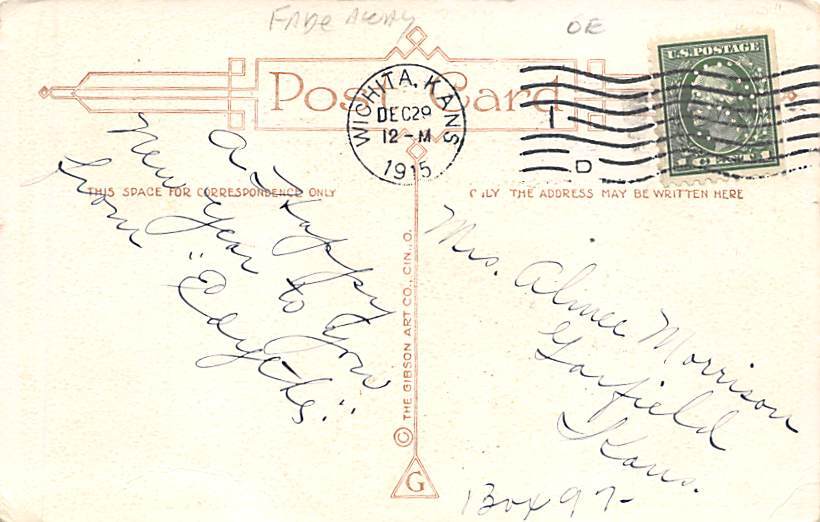 Fade Away
OE
U.S. POSTAGE
Post Card
WICHITA, KANS
DEC 29
12-M
1915
1
D
THIS SPACE FOR CORRESPONDENCE ONLY
ONLY THE ADDRESS MAY BE WRITTEN HERE
A Happy
New Year to you
from "Edythe."
© THE GIBSON ART CO., CIN., O.
G
Mrs. Aimee Morrison
Garfield
Kans.
Box 97-